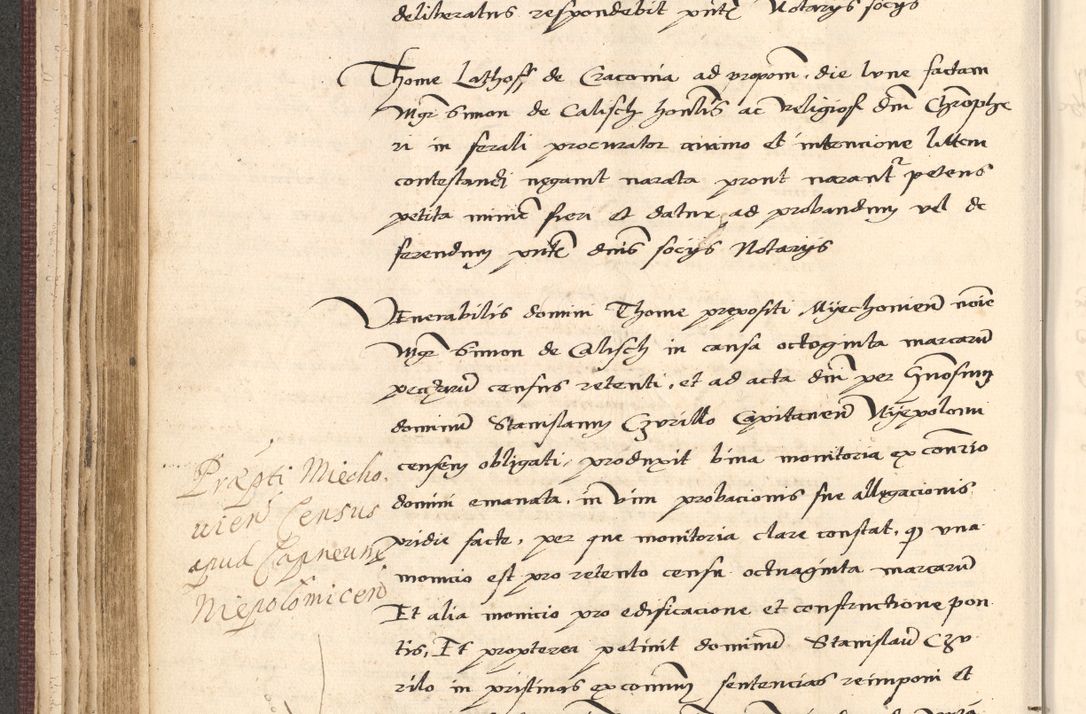 deliberatus respondebit pntę Notarijs socijs
Thome Lathosz de Cracovia ad propoñ. die lune factam
Mgr Simon de Calisch honlis ac Religiosi dni Chroophe
ri in ferali procurator animo et intencione littem
contestandi negavit narata prout narantr petens
petita minie fieri Et datur ad probandum vel de
ferendum pntę dnis socijs Notarijs
Venerabilis domini Thome prepositi Myechovien noie
Mgr Simon de Calisch in causa octoginta marcarum
peczarum census retenti, et ad acta dni per Gnosum
dominum Stanislaum Czurillo Capitaneum Nyepolomi
censem obligati, produxit bina monitoria ex conrio
domini emanata, in vim probacionis sue allegacionis
pridie facte, per que monitoria clare constat, q una
monicio est pro retento censu octuaginta marcarum
Et alia monicio pro edificacione et constructione pon
tis, Et propterea petiuit dominum Stanislaum Czu
rilo in pristinas excomum sentencias reimponi et
Præpti Miecho.
vien Census
apud Capneum
Niepolomicen